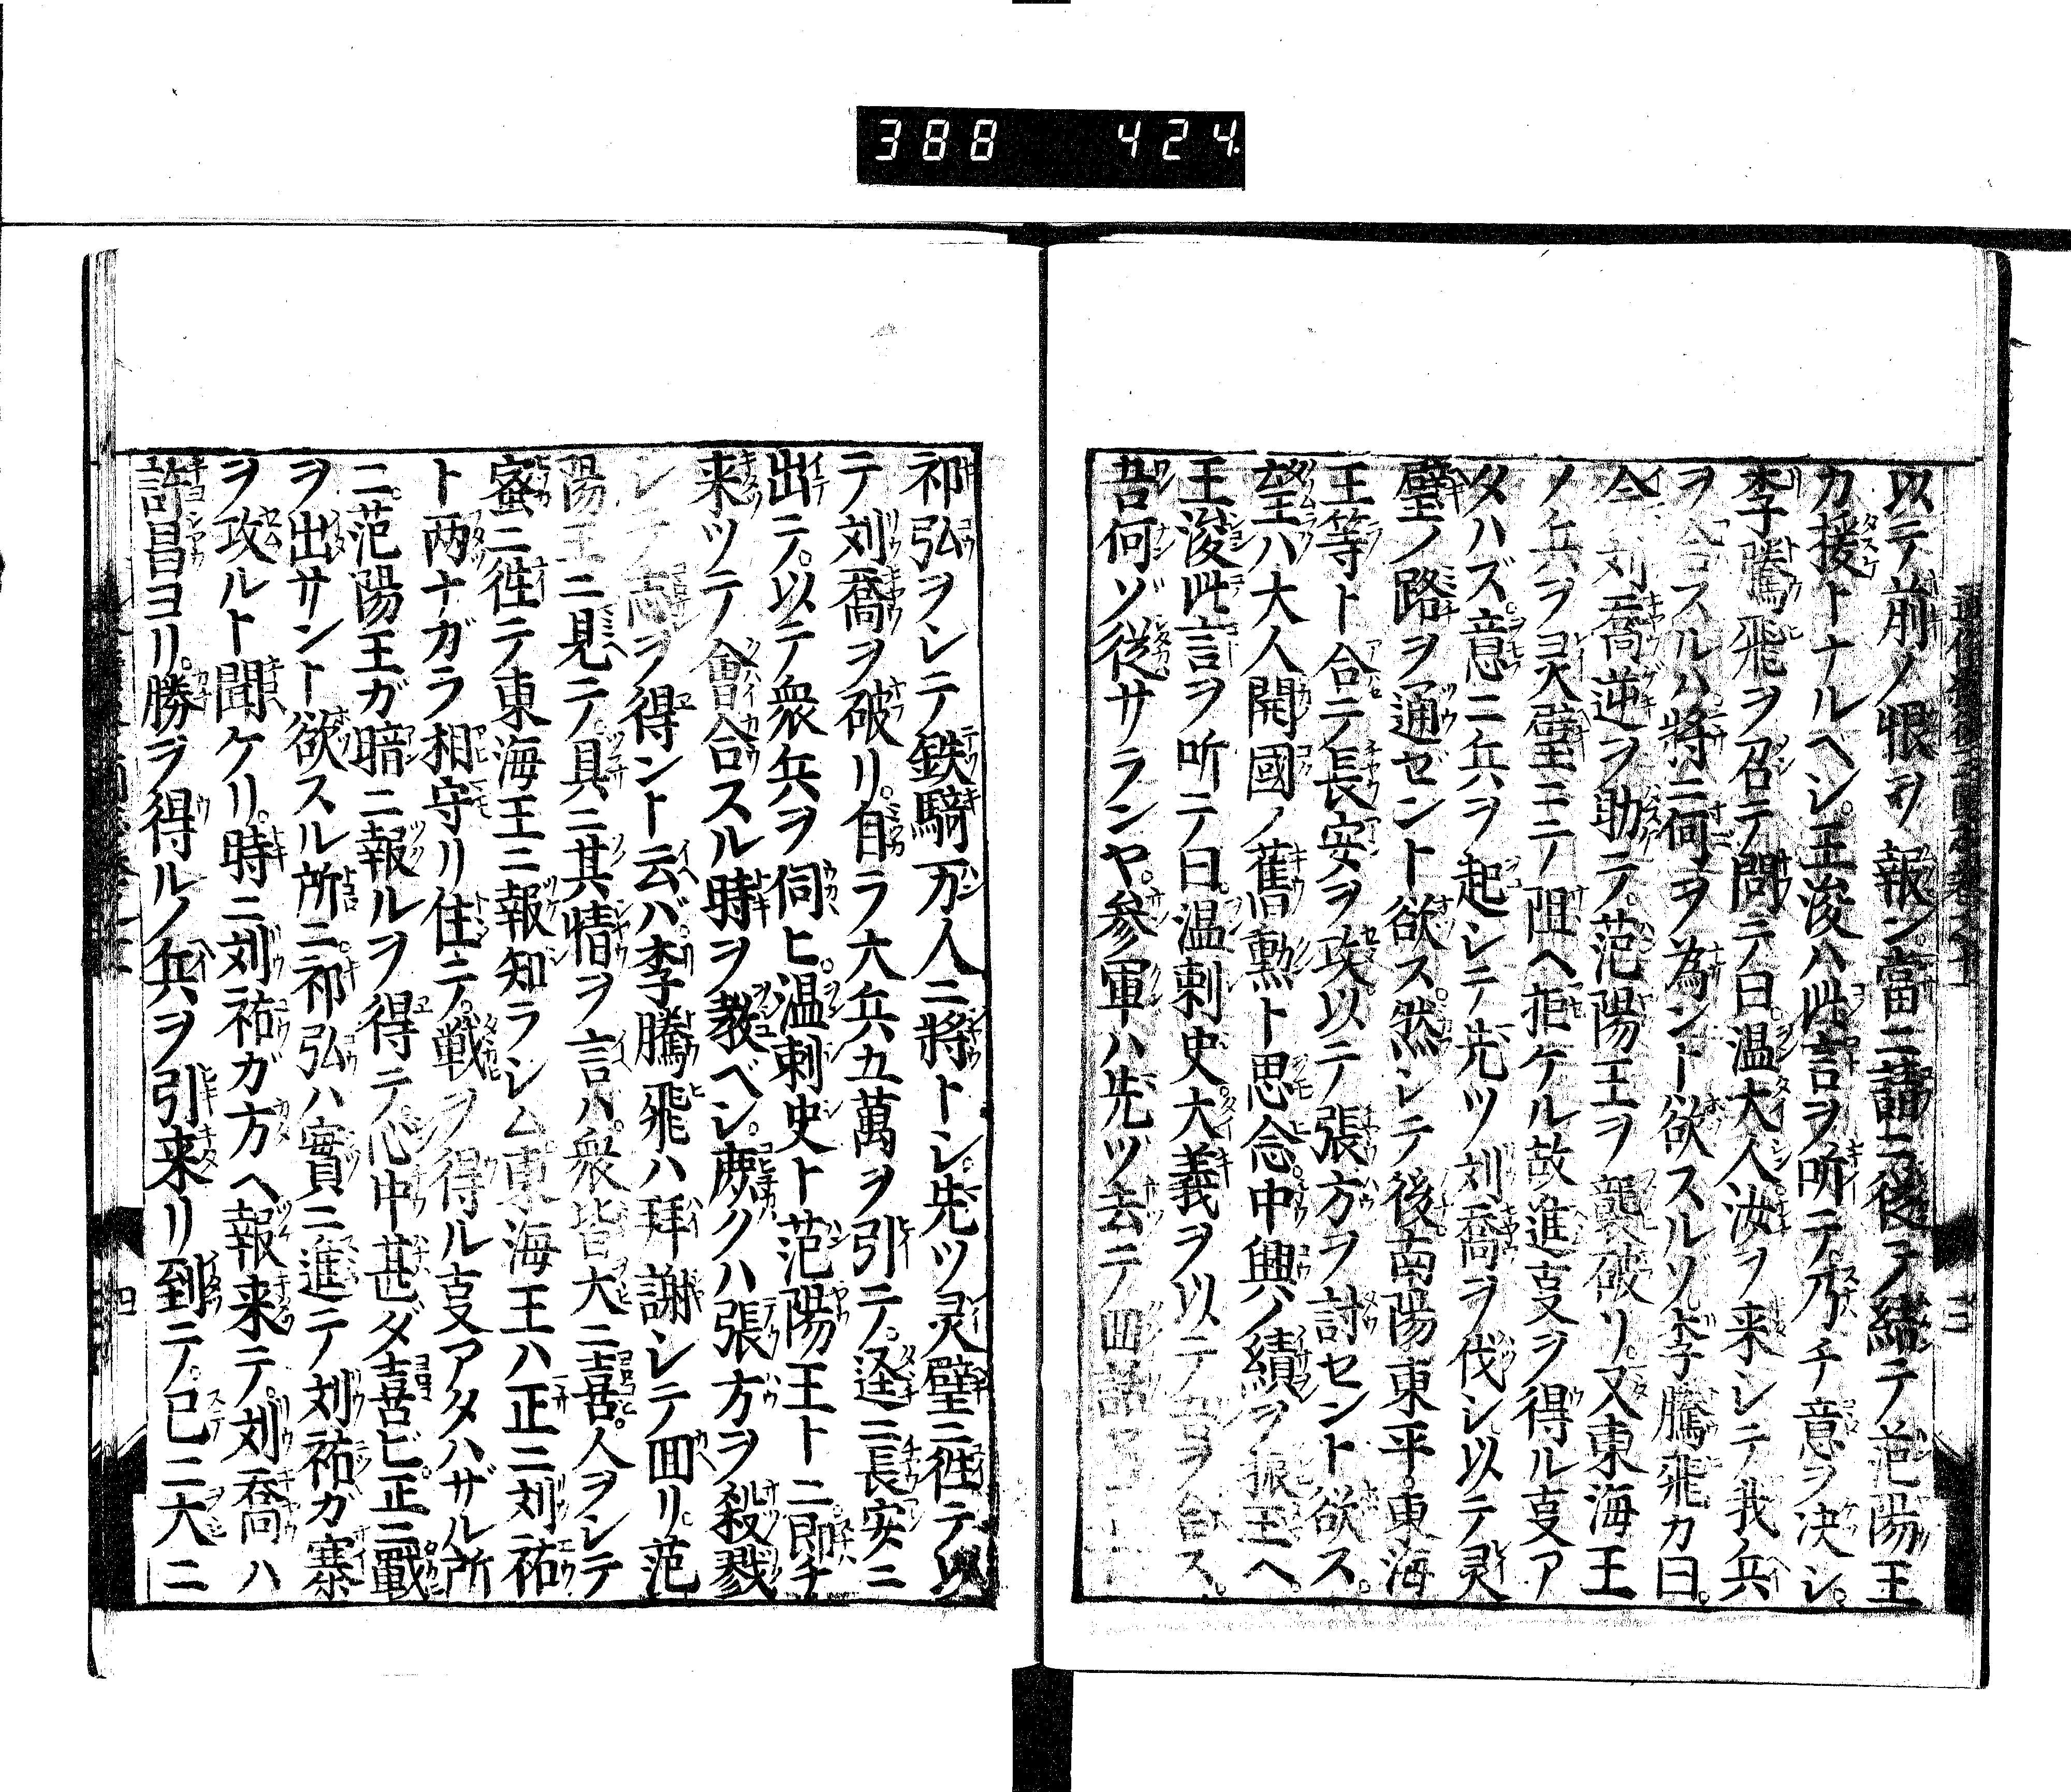 388 424.
以テ前ノ恨ヲ報ン當ニ諸ニ後ノ結テ范陽王
カ援トナルベシ王浚ハ此言ヲ听テ乃チ意ヲ决シ
李騰飛ヲ召テ問テ曰温大人汝ヲ来シテ我兵
ヲ合スルハ將ニ何ヲ為ント欲スルソ李騰飛カ曰
今刘喬逆ヲ助テ范陽王ヲ襲破リ又東海王
ノ兵ヲ灵璧ニテ阻ヘ拒ケル故進ヿヲ得ル支ア
タハズ意ニ兵ヲ起シテ先ツ刘喬ヲ伐シ以テ灵
璧ノ路ヲ通ゼント欲ス然シテ後南陽東平東海
王等ト合テ長安ヲ攻以テ張方ヲ討セント欲ス
望ハ大人開國ノ舊勲ト思念中興ノ績ヲ振王ヘ
王浚此言ヲ听テ曰温刺史大義ヲ以テ吾ヲ合ス
吾何ゾ從サランヤ参軍ハ先ツ去テ囬話
祁弘ヲシテ鉄騎万人ニ將トシ先ツ灵璧ニ徃テ以
テ刘喬ヲ破リ自ラ大兵五萬ヲ引テ逕ニ長安ニ
出テ以テ衆兵ヲ伺ヒ温刺史ト范陽王トニ即チ
来ツテ會合スル時ヲ教ベシ兩クハ張方ヲ殺戮
シテ志ヲ得ント云バ李騰飛ハ拜謝シテ囬リ范
陽王ニ見テ具ニ其情ヲ言ハ衆皆大ニ喜人ヲシテ
蜜ニ徃テ東海王ニ報知ラシム東海王ハ正ニ刘祐
ト两ナガラ相守リ住テ戦ヲ得ル支アタハザル所
ニ范陽王ガ暗ニ報ルヲ得テ心中甚ダ喜ビ正ニ戰
ヲ出サント欲スル所ニ祁弘ハ實ニ進テ刘祐カ寨
ヲ攻ルト聞ケリ時ニ刘祐ガ方ヘ報来テ刘喬ハ
許昌ヨリ勝ヲ得ルノ兵ヲ引来リ到テ已ニ大ニ